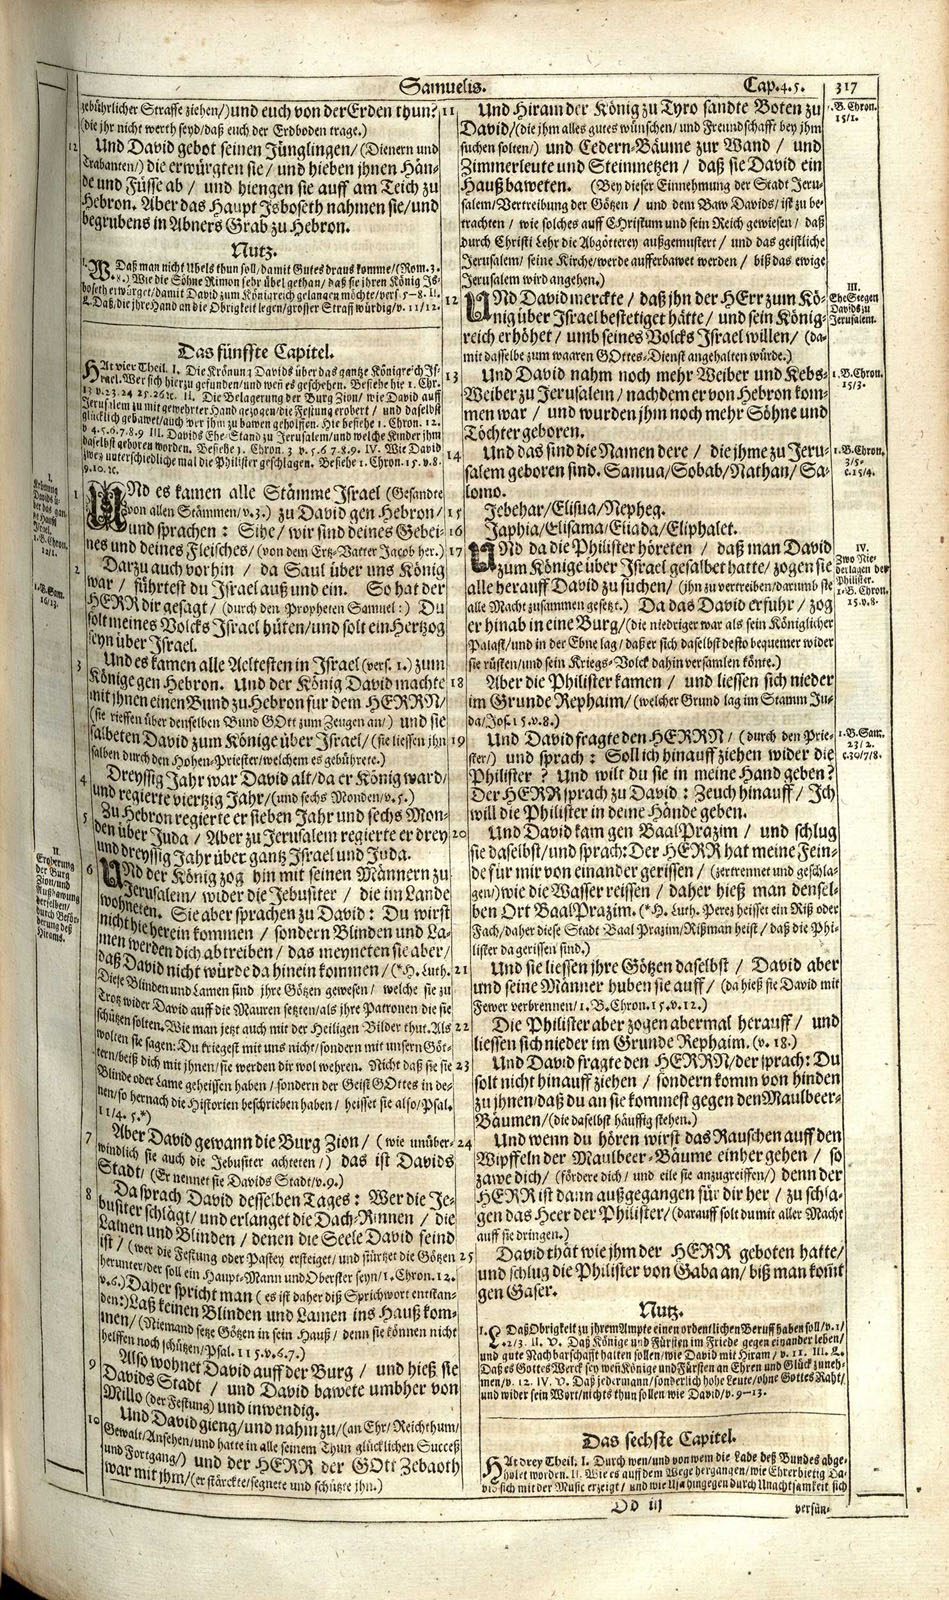 Samuelis.
Cap. 4. 5.
317
gebührlicher Straffe ziehen/) und euch von der Erden thun?
(die jhr nicht werth seyd/ daß euch der Erdboden trage.)
12 Und David gebot seinen Jünglingen/ (Dienern und
Trabanten/) die erwürgten sie/ und hieben jhnen Hän-
de und Füsse ab / und hiengen sie auff am Teich zu
Hebron. Aber das Haupt Isboseth nahmen sie/ und
begrubens in Abners Grab zu Hebron.
Nutz.
I. W. Daß man nicht Ubels thun soll/ damit Gutes draus komme/ (Rom. 3.
v. 8.) Wie die Söhne Rimon sehr übel gethan/ daß sie jhren König Is-
boseth erwürget/ damit David zum Königreich gelangen möchte/ vers. 5-8. II.
L. Daß/ die jhre Hand an die Obrigkeit legen/ grosser Straff würdig/ v. 11/12.
Das fünffte Capitel.
HAt vier Theil. I. Die Krönung Davids über das gantze Königreich Is-
rael. Wer sich hierzu gefunden/ und wen es geschehen. Besiehe hie 1. Chr.
12 v. 23. 24 25. 26 ꝛc. II. Die Belagerung der Burg Zion/ wie David auff
Jerusalem zu mit gewehrter Hand gezogen/ die Festung erobert/ und daselbst
glücklich gebawet/ auch wer jhm zu bawen geholffen. Hie besiehe 1. Chron. 12.
v 4. 5. 6. 7. 8. 9 III. Davids Ehe-Stand zu Jerusalem/ und welche Kinder jhm
daselbst geboren worden. Besiehe 1. Chron. 3 v. 5. 6 7 8. 9. IV. Wie David
zwey unterschiedliche mal die Philister geschlagen. Besiehe 1. Chron. 15. v. 8.
9. 10. ꝛc.
I.
Krönung
Davids ü-
ber das gan-
tze Hauß
Israel.
1. B. Chron.
12/1.
1 UNd es kamen alle Stämme Israel (Gesandte
von allen Stämmen/ v. 3.) zu David gen Hebron/
und sprachen: Sihe/ wir sind deines Gebei-
nes und deines Fleisches/ (von dem Ertz-Vatter Jacob her.)
2 Darzu auch vorhin / da Saul über uns König
war / führtest du Israel auß und ein. So hat der
HERR dir gesagt/ (durch den Propheten Samuel:) Du
solt meines Volcks Israel hüten/ und solt ein Hertzog
seyn über Israel.
1. B. Sam.
16/13.
3 Und es kamen alle Aeltesten in Israel (vers. 1.) zum
Könige gen Hebron. Und der König David machte
mit jhnen einen Bund zu Hebron für dem HERRN/
(sie rieffen über denselben Bund GOtt zum Zeugen an/) und sie
salbeten David zum Könige über Israel/ (sie liessen jhn
salben durch den Hohen-Priester/ welchem es gebührete.)
4 Dreyssig Jahr war David alt/ da er König ward/
und regierte viertzig Jahr/ (und sechs Monden/ v. 5.)
5 Zu Hebron regierte er sieben Jahr und sechs Mon-
den über Juda / Aber zu Jerusalem regierte er drey
und dreyssig Jahr über gantz Israel und Juda.
II.
Eroberung
der Burg
Zion/ und
Außbawung
derselben/
durch Beför-
derung deß
Hirams.
6 UNd der König zog hin mit seinen Männern zu
Jerusalem/ wider die Jebusiter / die im Lande
wohneten. Sie aber sprachen zu David: Du wirst
nicht hie herein kommen / sondern Blinden und La-
men werden dich abtreiben / das meyneten sie aber/
daß David nicht würde da hinein kommen / (*H. Luth.
Diese Blinden und Lamen sind jhre Götzen gewesen/ welche sie zu
Trotz wider David auff die Mauren setzten/ als jhre Patronen die sie
schützen solten. Wie man jetzt auch mit der Heiligen Bilder thut. Als
wolten sie sagen: Du kriegest mit uns nicht/ sondern mit unsern Göt-
tern/ beiß dich mit jhnen/ sie werden dir wol wehren. Nicht daß sie sie
Blinde oder Lame geheissen haben / sondern der Geist GOttes in de-
nen/ so hernach die Historien beschrieben haben / heisset sie also/ Psal.
11/4. 5.*)
7 Aber David gewann die Burg Zion/ (wie unüber-
windlich sie auch die Jebusiter achteten/) das ist Davids
Stadt/ (Er nennet sie Davids Stadt/ v. 9.)
8 Da sprach David desselben Tages: Wer die Je-
busiter schlägt/ und erlanget die Dach-Rinnen / die
Lamen und Blinden / denen die Seele David feind
ist / (wer die Festung oder Pastey ersteiget/ und stürtzet die Götzen
herunter/ der soll ein Haupt-Mann und Oberster seyn/ 1. Chron. 12.
v. 6.) Daher spricht man (es ist daher diß Sprichwort entstan-
den:) Laß keinen Blinden und Lamen ins Hauß kom-
men/ (Niemand setze Götzen in sein Hauß / denn sie können nicht
helffen noch schützen/ Psal. 115. v. 6. 7.)
9 Also wohnet David auff der Burg / und hieß sie
Davids Stadt / und David bawete umbher von
Millo (der Festung) und inwendig.
10 Und David gieng/ und nahm zu/ (an Ehr/ Reichthum/
Gewalt/ Ansehen/ und hatte in alle seinem Thun glücklichen Succeß
und Fortgang/) und der HERR der GOtt Zebaoth
war mit jhm/ (er stärckte/ segnete und schütze jhn.)
11 Und Hiram der König zu Tyro sandte Boten zu
David/ (die jhm alles gutes wünschen/ und Freundschafft bey jhm
suchen solten/) und Cedern-Bäume zur Wand / und
Zimmerleute und Steinmetzen / daß sie David ein
Hauß baweten. (Bey dieser Einnehmung der Stadt Jeru-
salem/ Vertreibung der Götzen / und dem Baw Davids/ ist zu be-
trachten / wie solches auff Christum und sein Reich gewiesen / daß
durch Christi Lehr die Abgötterey außgemustert / und das geistliche
Jerusalem/ seine Kirche/ werde aufferbawet werden / biß das ewige
Jerusalem wird angehen.)
1. B. Chron.
15/1.
III.
Ehe-Segen
Davids zu
Jerusalem.
12 UNd David merckte / daß jhn der HErr zum Kö-
nig über Israel bestetiget hätte / und sein König-
reich erhöhet / umb seines Volcks Israel willen/ (da-
mit dasselbe zum waaren GOttes-Dienst angehalten würde.)
13 Und David nahm noch mehr Weiber und Kebs-
Weiber zu Jerusalem / nachdem er von Hebron kom-
men war / und wurden jhm noch mehr Söhne und
Töchter geboren.
1. B. Chron.
15/3.
14 Und das sind die Namen dere / die jhme zu Jeru-
salem geboren sind. Samua/ Sobab/ Nathan/ Sa-
lomo.
1. B. Chron.
3/5.
c. 15/4.
15 Jebehar/ Elisua/ Nepheg.
16 Japhia/ Elisama/ Eliada/ Eliphalet.
17 UNd da die Philister höreten / daß man David
zum Könige über Israel gesalbet hatte/ zogen sie
alle herauff David zu suchen/ (ihn zu vertreiben/ darumb sie
alle Macht zusammen gesetzt.) Da das David erfuhr / zog
er hinab in eine Burg/ (die niedriger war als sein Königlicher
Palast/ und in der Ebne lag/ daß er sich daselbst desto bequemer wider
sie rüsten/ und sein Kriegs-Volck dahin versamlen könte.)
IV.
Zwo Nie-
derlagen der
Philister.
1. B. Chron.
15. v. 8.
18 Aber die Philister kamen / und liessen sich nieder
im Grunde Rephaim/ (welcher Grund lag im Stamm Ju-
da/ Jos. 15. v. 8.)
19 Und David fragte den HERRN / (durch den Prie-
ster/) und sprach: Soll ich hinauff ziehen wider die
Philister ? Und wilt du sie in meine Hand geben?
Der HERR sprach zu David: Zeuch hinauff / Ich
will die Philister in deine Hände geben.
1. B. Sam.
23/2.
c. 30/7/8.
20 Und David kam gen Baal Prazim / und schlug
sie daselbst/ und sprach: Der HERR hat meine Fein-
de für mir von einander gerissen / (zertrennet und geschla-
gen/) wie die Wasser reissen / daher hieß man densel-
ben Ort Baal Prazim. (*H. Luth. Perez heisset ein Riß oder
Fach/ daher diese Stadt Baal Prazim/ Rißman heist / daß die Phi-
lister da gerissen sind.)
21 Und sie liessen jhre Götzen daselbst / David aber
und seine Männer huben sie auff / (da hieß sie David mit
Fewer verbrennen/ 1. B. Chron. 15. v. 12.)
22 Die Philister aber zogen abermal herauff / und
liessen sich nieder im Grunde Rephaim. (v. 18.)
23 Und David fragte den HERRN/ der sprach: Du
solt nicht hinauff ziehen / sondern komm von hinden
zu jhnen/ daß du an sie kommest gegen den Maulbeer-
Bäumen/ (die daselbst häuffig stehen.)
24 Und wenn du hören wirst das Rauschen auff den
Wipffeln der Maulbeer-Bäume einher gehen / so
zawe dich/ (fördere dich / und eile sie anzugreiffen/) denn der
HERR ist dann außgegangen für dir her / zu schla-
gen das Heer der Philister/ (darauff solt du mit aller Macht
auff sie dringen.)
25 David thät wie jhm der HERR geboten hatte/
und schlug die Philister von Gaba an/ biß man komt
gen Gaser.
Nutz.
I. L. Daß Obrigkeit zu jhrem Ampte einen ordentlichen Beruff haben soll/ v. 1/
2/3. II. V. Daß Könige und Fürsten im Friede gegen einander leben/
und gute Nachbarschafft halten sollen/ wie David mit Hiram / v. 11. III. L.
Daß es Gottes Werck sey/ weñ Könige und Fürsten an Ehren und Glück zuneh-
men/ v. 12. IV. V. Daß jedermann/ sonderlich hohe Leute/ ohne Gottes Raht/
und wider sein Wort/ nichts thun sollen wie David/ v. 9-13.
Das sechste Capitel.
HAt drey Theil. I. Durch wen/ und von wem die Lade deß Bundes abge-
holet worden. II. Wie es auff dem Wege hergangen/ wie Ehrerbietig Da-
vid sich mit der Music erzeigt / und wie Usa hingegen durch Unachtsamkeit sich
Dd iij
versün-